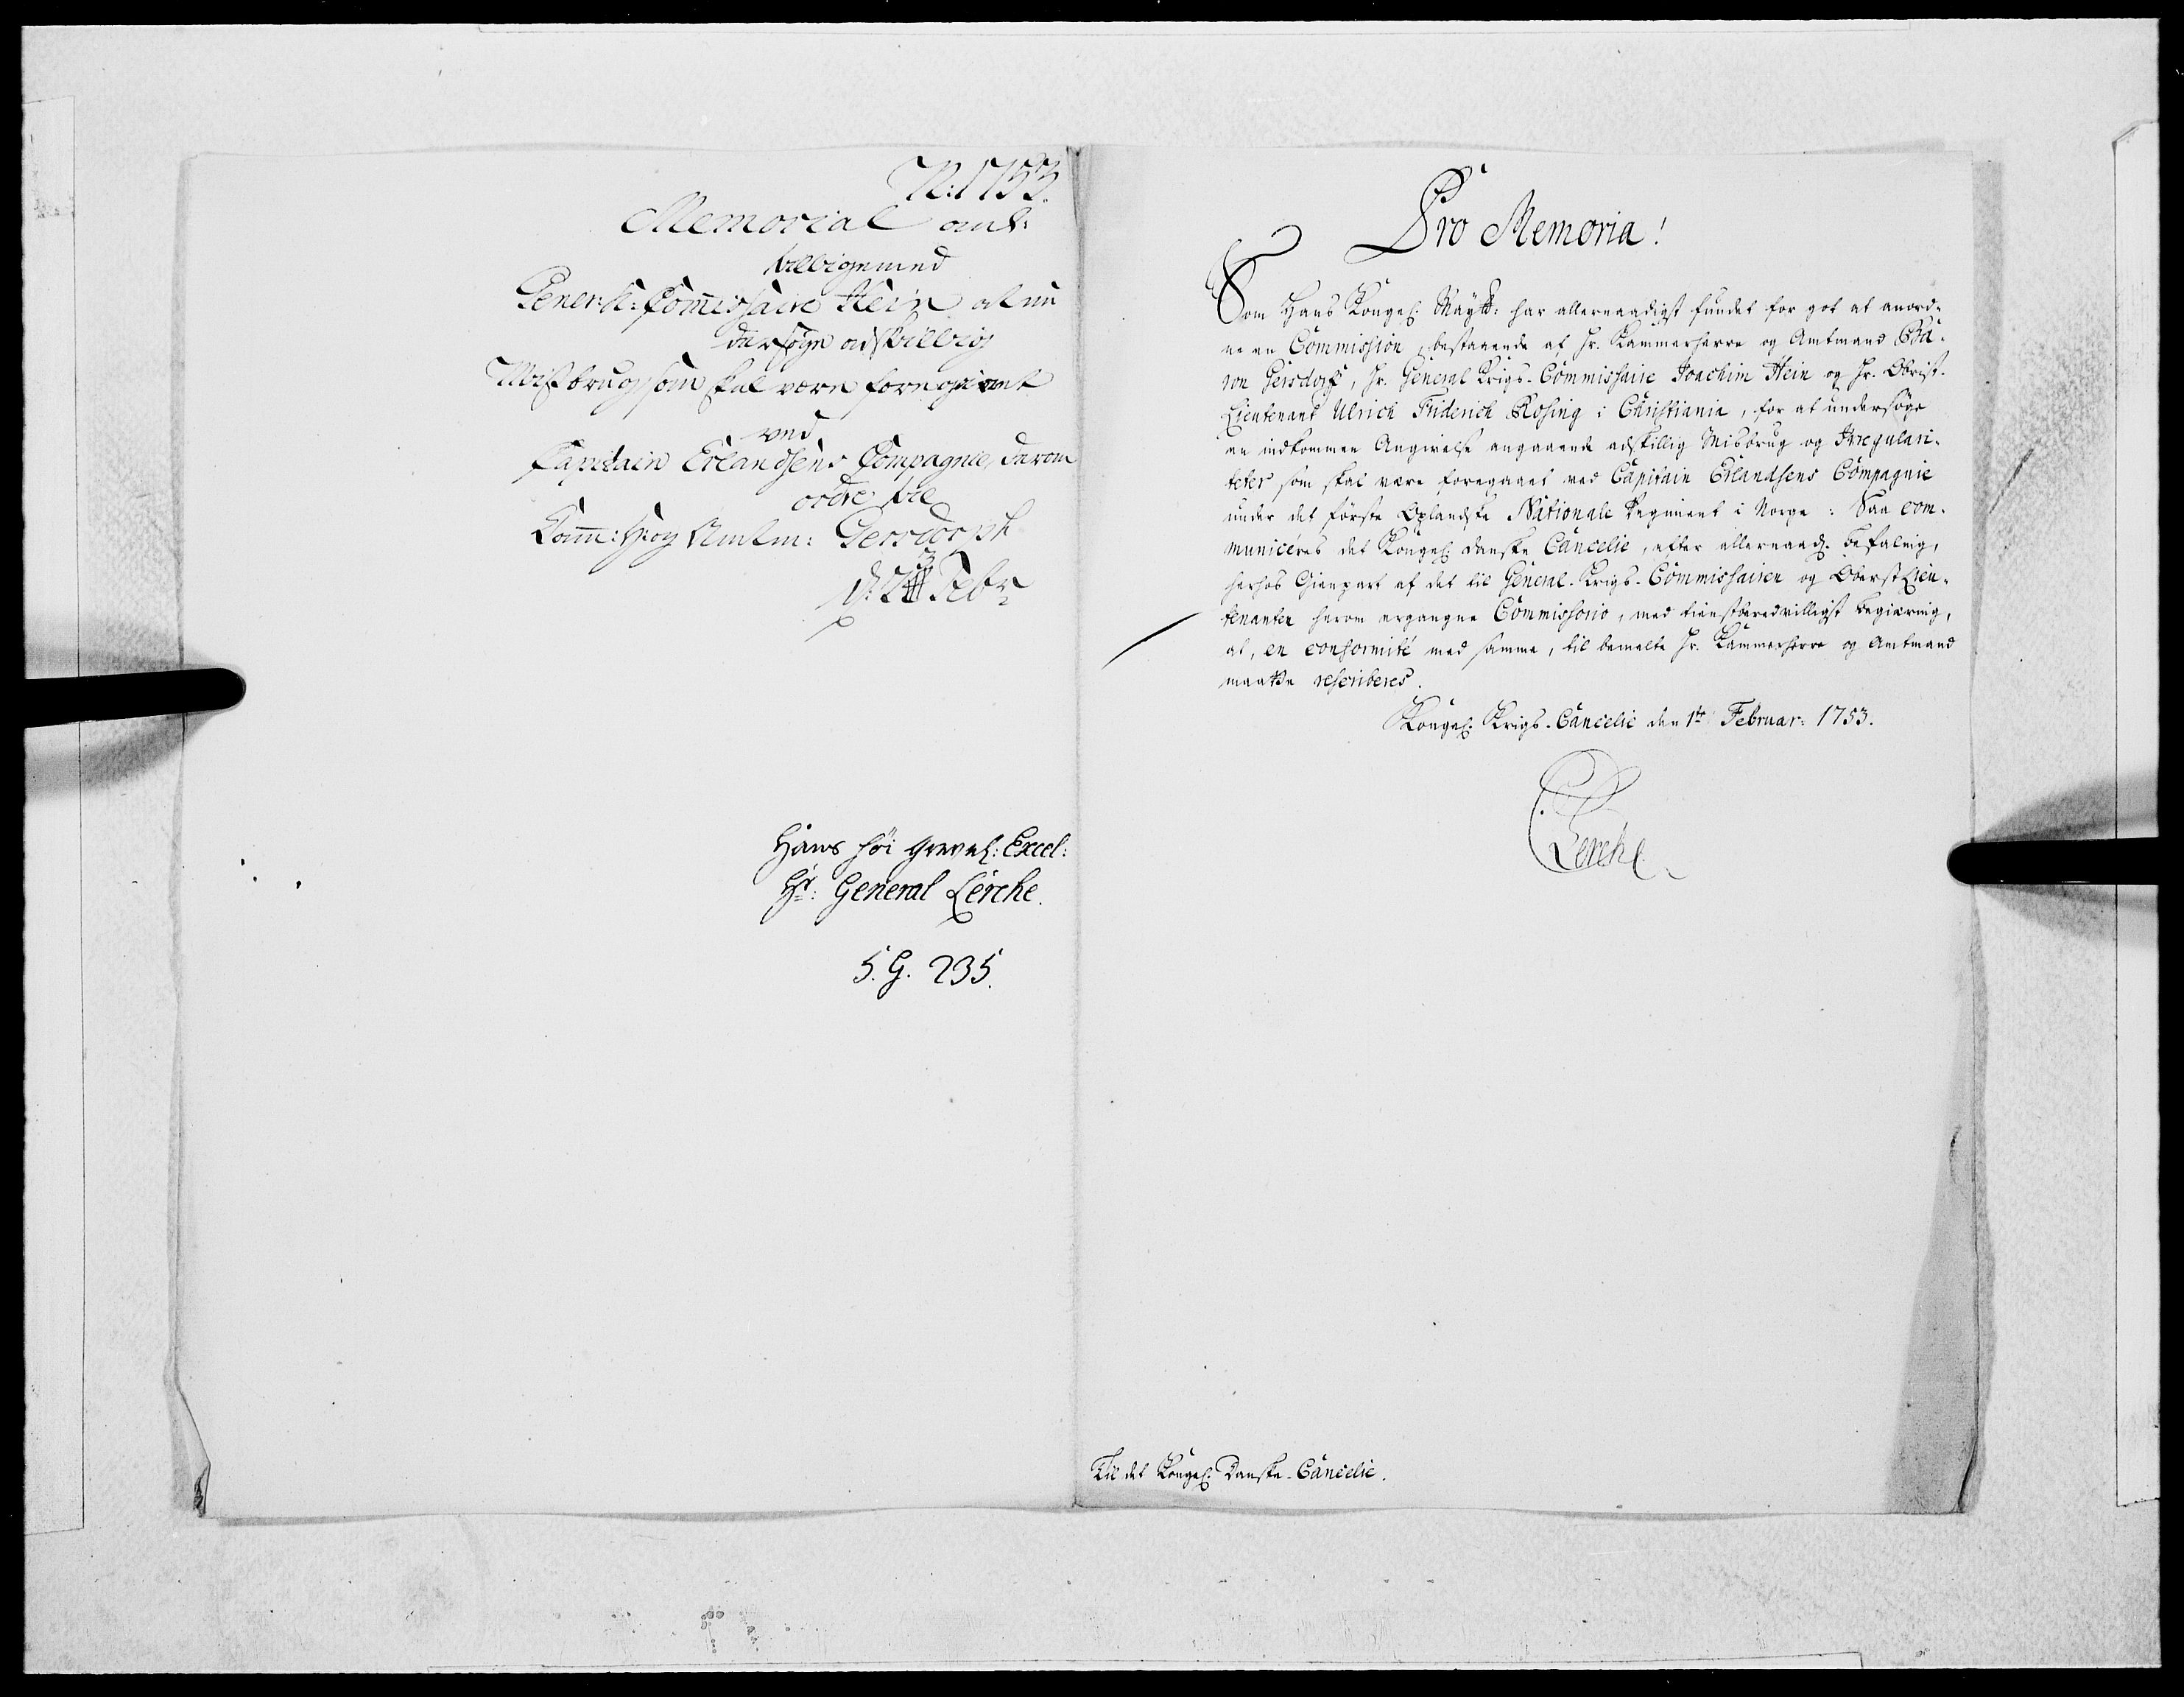 N: 1753.
Memorial anl:
tilligemed
Gener: K: Commissaire Hein at un
dersøge adskillig
Misbrug som skal være foregaaet
ved
Capitain Erlandsens Compagnie, derom
ordre til
Kam: Hr og Amtm: Gersdorph
d: 23 Febr
Hans høi Grevel: Excel:
Hr: General Lerche.
5. G. 235.
Pro Memoria!
Som Hans Kongel: Mayst: har allernaadigst fundet for got at anord-
ne en Commission, bestaaende af Hr. Kammerherre og Amtmand Ba-
ron Gersdorff, Hr. General Krigs-Commissaire Joachim Hein og Hr. Obrist-
Lieutenant Ulrich Friderich Rosing i Christiania, for at undersøge
en indkommen Angivelse angaaende adskillig Misbrug og Irregulari-
teter som skal være foregaaet ved Capitain Erlandsens Compagnie
under det første Oplandske Nationale Regiment i Norge: Saa com-
municeres det Kongel: danske Cancelie, efter allernaad: befaling,
herhos Gienpart af det til General-Krigs-Commissairen og Oberstlieu-
tenanten herom ergangne Commissorio, med tienstberedvilligst begiæring,
at, en conformité med samme, til bemelte Hr. Kammerherre og Amtmand
maatte rescriberes.
Kongel: Krigs-Cancelie den 1ste Februar: 1753.
Lerche
Til det Kongel: Danske-Cancelie.